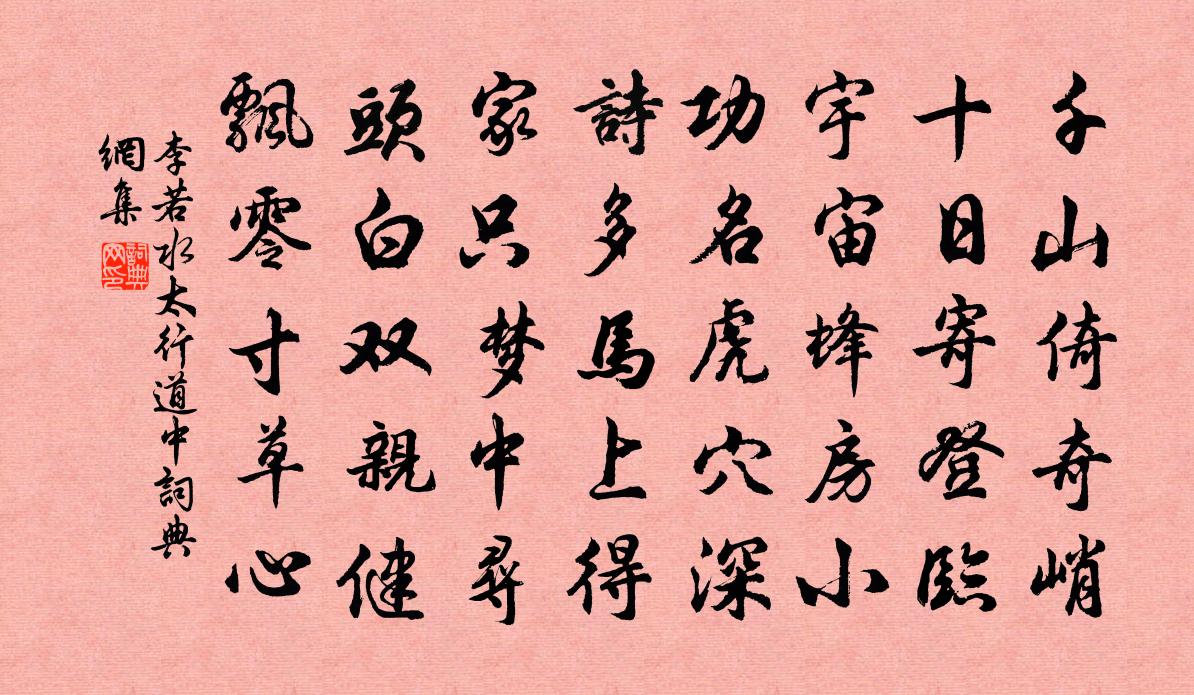 千山倚奇峭
十日寄登臨
宇宙蜂房小
功名虎穴深
詩多馬上得
家只梦中尋
頭白双親健
飄零寸草心
李若水太行道中詞典
網集
詞典
网印